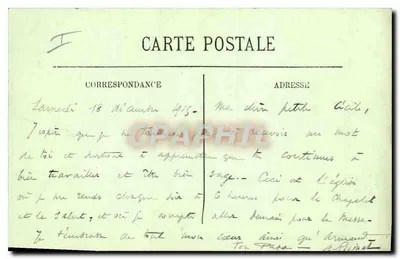 I
CARTE POSTALE
CORRESPONDANCE
ADRESSE
Samedi 18 décembre 1915- Ma chère petite Cécile,
J'espère que je ne à recevois un mot
de toi et surtout à apprendre que tu continues à
bien travailler et être bien sage. Ceci est l'église
où je me rends chaque soir à 6 heures pour le Chapelet
et le Salut, et où je compte aller demain pour la Messe.
Je t'embrasse de tout mon cœur ainsi qu'Armand
Ton Papa
CPARTPHIL